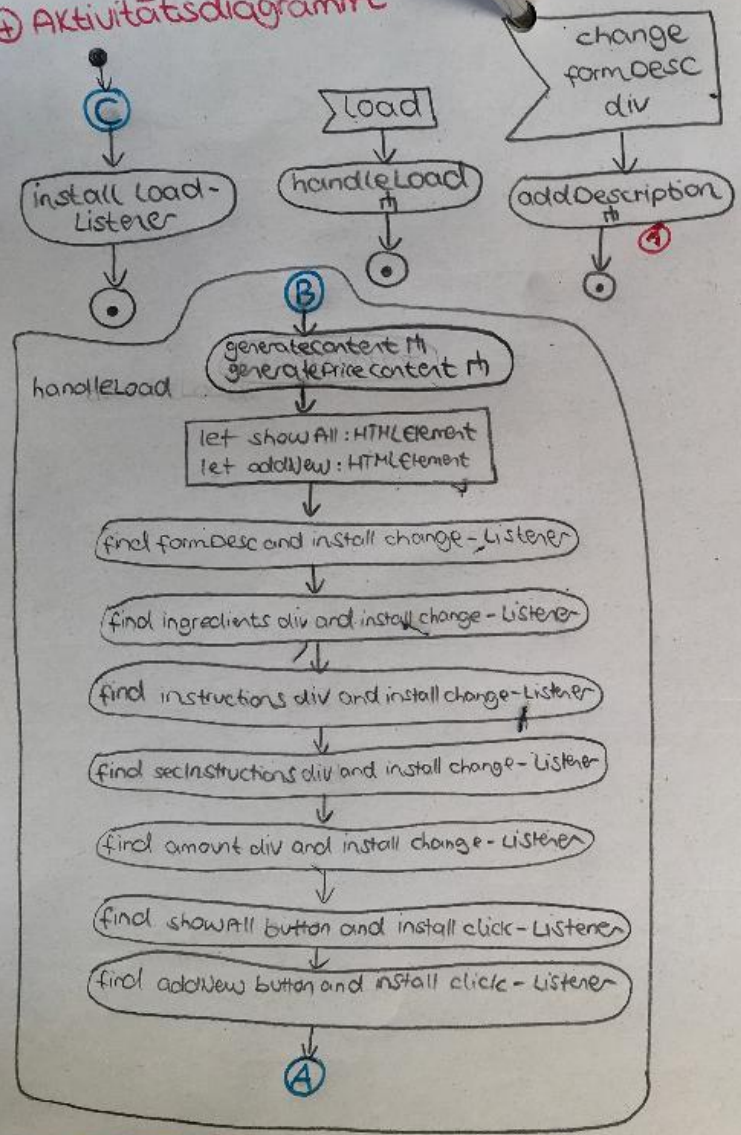 ④ Aktivitätsdiagramm
C
install load-
Listener
load
handleLoad
change
formDesc
div
addDescription
A
B
handleLoad
generateContent
generatePriceContent
let showAll: HTMLElement
let addNew: HTMLElement
find formDesc and install change-Listener
find ingredients div and install change-Listener
find instructions div and install change-Listener
find secInstructions div and install change-Listener
find amount div and install change-Listener
find showAll button and install click-Listener
find addNew button and install click-Listener
A